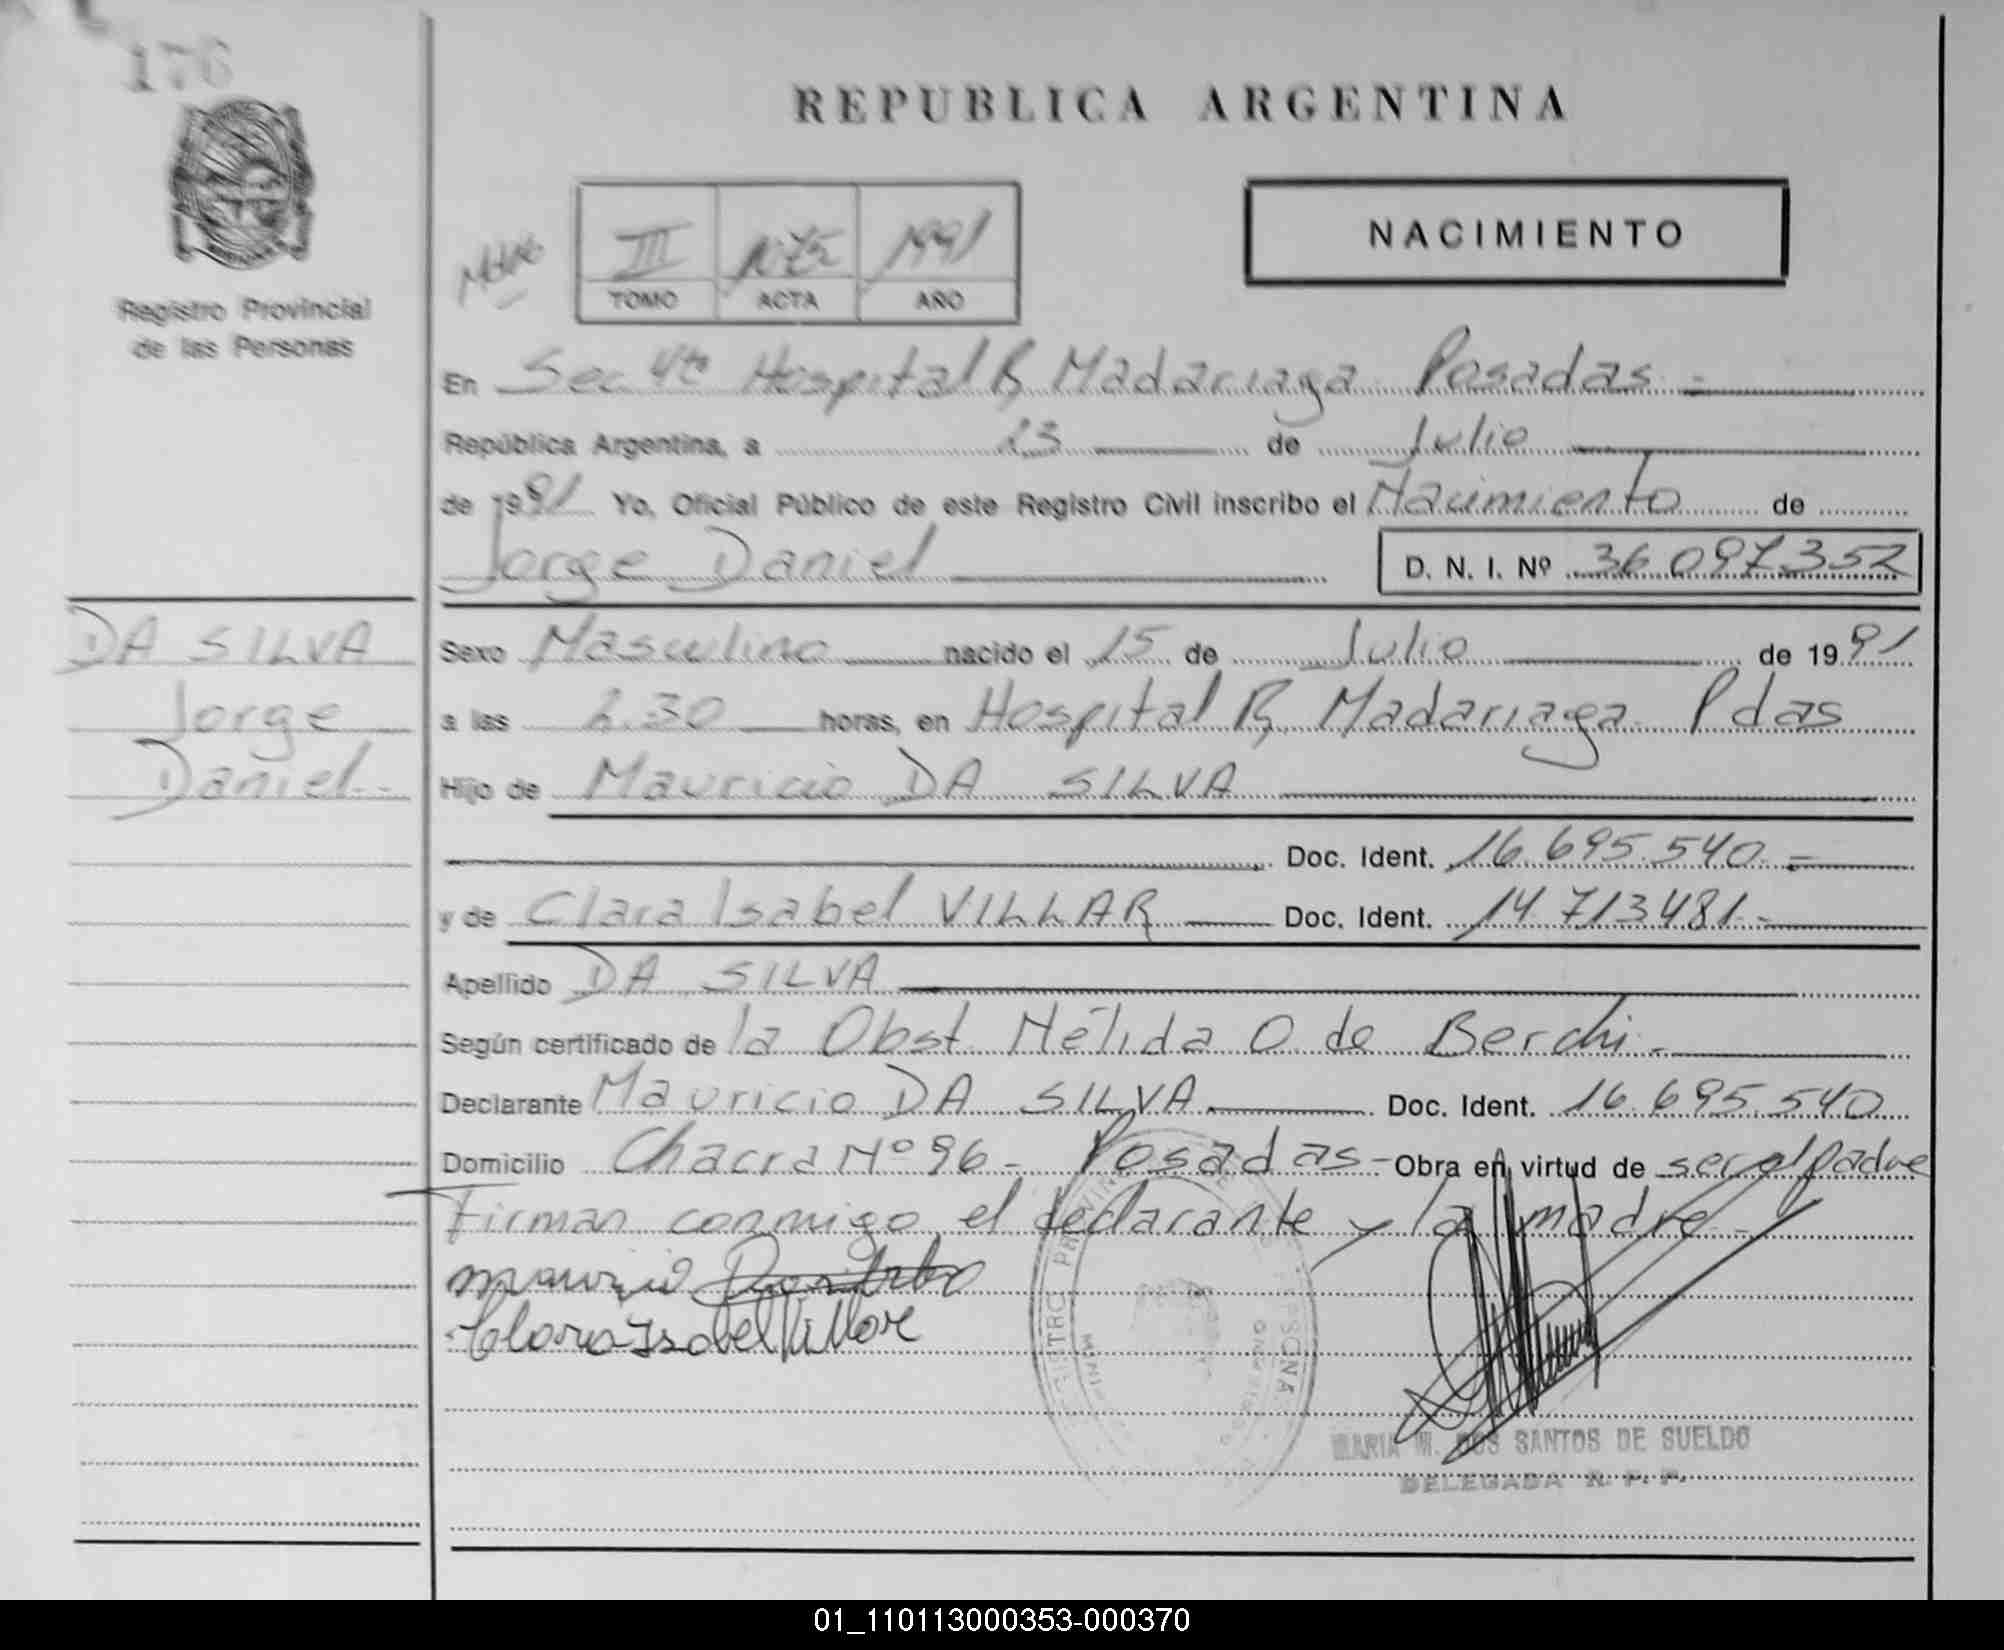 176
REPUBLICA ARGENTINA
NACIMIENTO
III 1075 1991
TOMO ACTA AÑO
Registro Provincial
de las Personas
En Sec 4ta Hospital R, Madariaga Posadas -
República Argentina, a 23 de Julio
de 1991 Yo, Oficial Público de este Registro Civil inscribo el Nacimiento de
Jorge Daniel D. N. I. Nº 36.097.352
DA SILVA
Jorge
Daniel.-
Sexo Masculino nacido el 15 de Julio de 1991
a las 2.30 horas, en Hospital R, Madariaga Pdas
Hijo de Mauricio DA SILVA
Doc. Ident. 16.695.540.-
y de Clara Isabel VILLAR Doc. Ident. 14.713.481.-
Apellido DA SILVA
Según certificado de la Obst. Nélida O. de Berchi.-
Declarante Mauricio DA SILVA Doc. Ident. 16.695.540
Domicilio Chacra Nº 96- Posadas- Obra en virtud de ser el padre
Firman conmigo el declarante y la madre.-
Clara Isabel Villar
MARIA M. DOS SANTOS DE SUELDO
DELEGADA R. P. P.
01_110113000353-000370